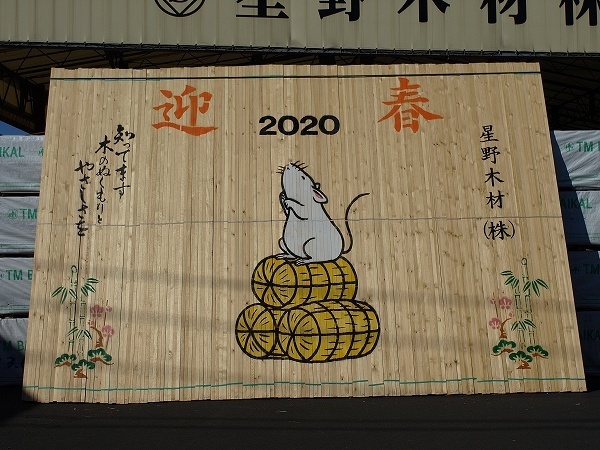 星野木材株
迎 2020 春
知ってます
木のぬくもりと
やさしさを
星野木材(株)
TM BAIKAL
TM B
TM B
AIKAL
KAL